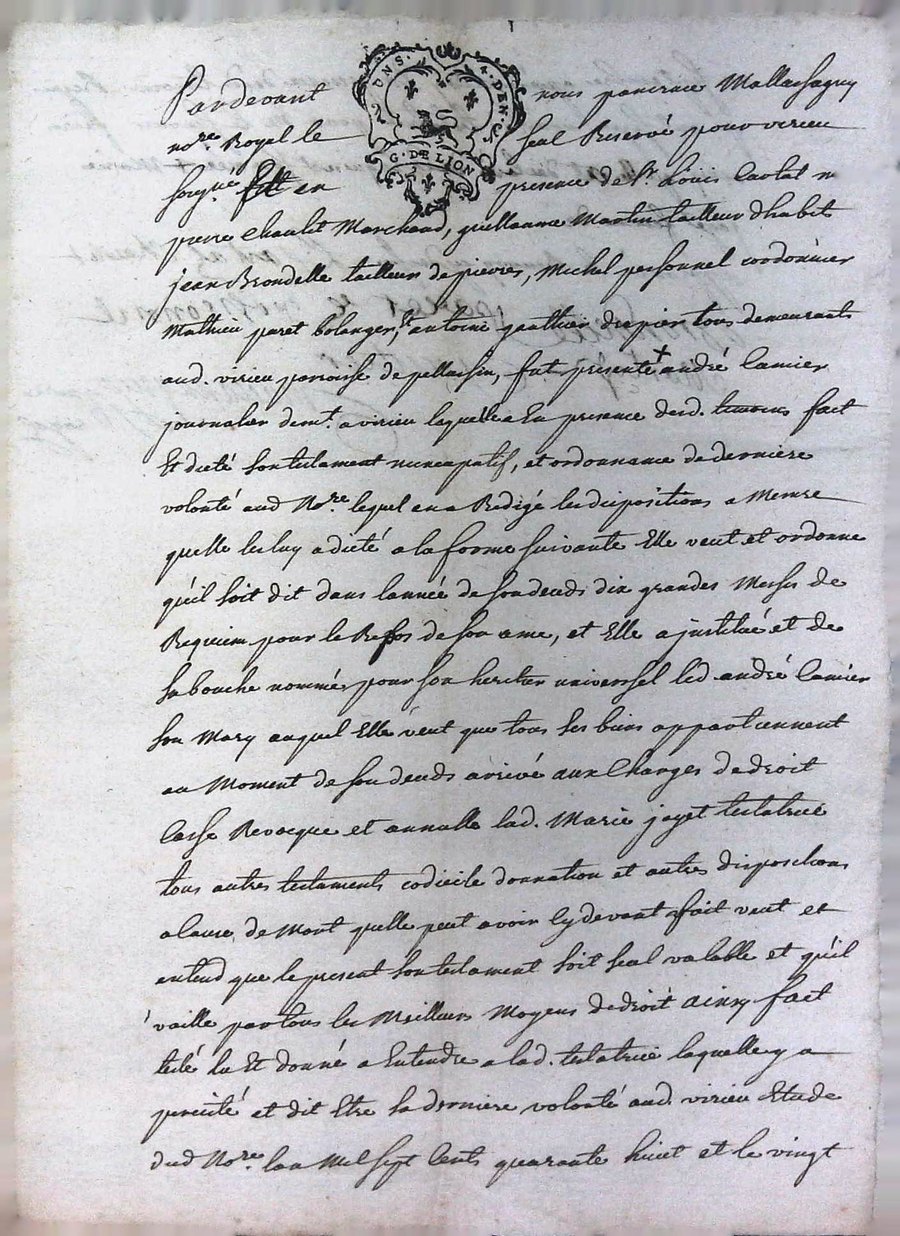 UNS. 4. DEN.
G. DE LION
Pardevant nous pancrace Mallassagny
no.re Royal le seul Reservé pour virieu
soug.né fut en presence de s.r Louis Carlat m
pierre Chaulit Marchand, guillaume Martin tailleur dhabit
jean Brondelle tailleur de pierres, Michel personnel cordonnier
Mathieu paret bolanger, et antoine gauthier drapier tous demeurants
aud. virieu parroise de pellussin, fut presente + andré Camier
journalier dem.t a virieu laquelle a En presence desd. temoins fait
Et dicté son testament nuncupatif, et ordonnance de derniere
volonté aud No.re lequel en a Redigé les dispositions a Mesure
quelle les luy a dicté a la forme suivante Elle veut et ordonne
qu'il soit dit dans lannée de son deceds dix grandes Messes de
Requiem pour le Repos de son ame, et Elle a justitué et de
sa bouche nommé pour son heritier universel led andré Camier
son Mary auquel Elle veut que tous ses biens appartiennent
au Moment de son deceds arrivé aux Charges de droit
Casse Revocque et annulle lad. Marie jayet testatrice
tous autres testaments codicile donnation et autres dispositions
a cause de Mort quelle peut avoir cy devant fait veut et
entend que le present son testament soit seul valable et qu'il
vaille par tous les Meilleurs Moyens de droit ainsy fait
testé lu Et donné a Entendre a lad. testatrice laquelle y a
percisté et dit Etre sa derniere volonté aud. virieu Etude
dud No.re lan Mil sept Cents quarante huit et le vingt